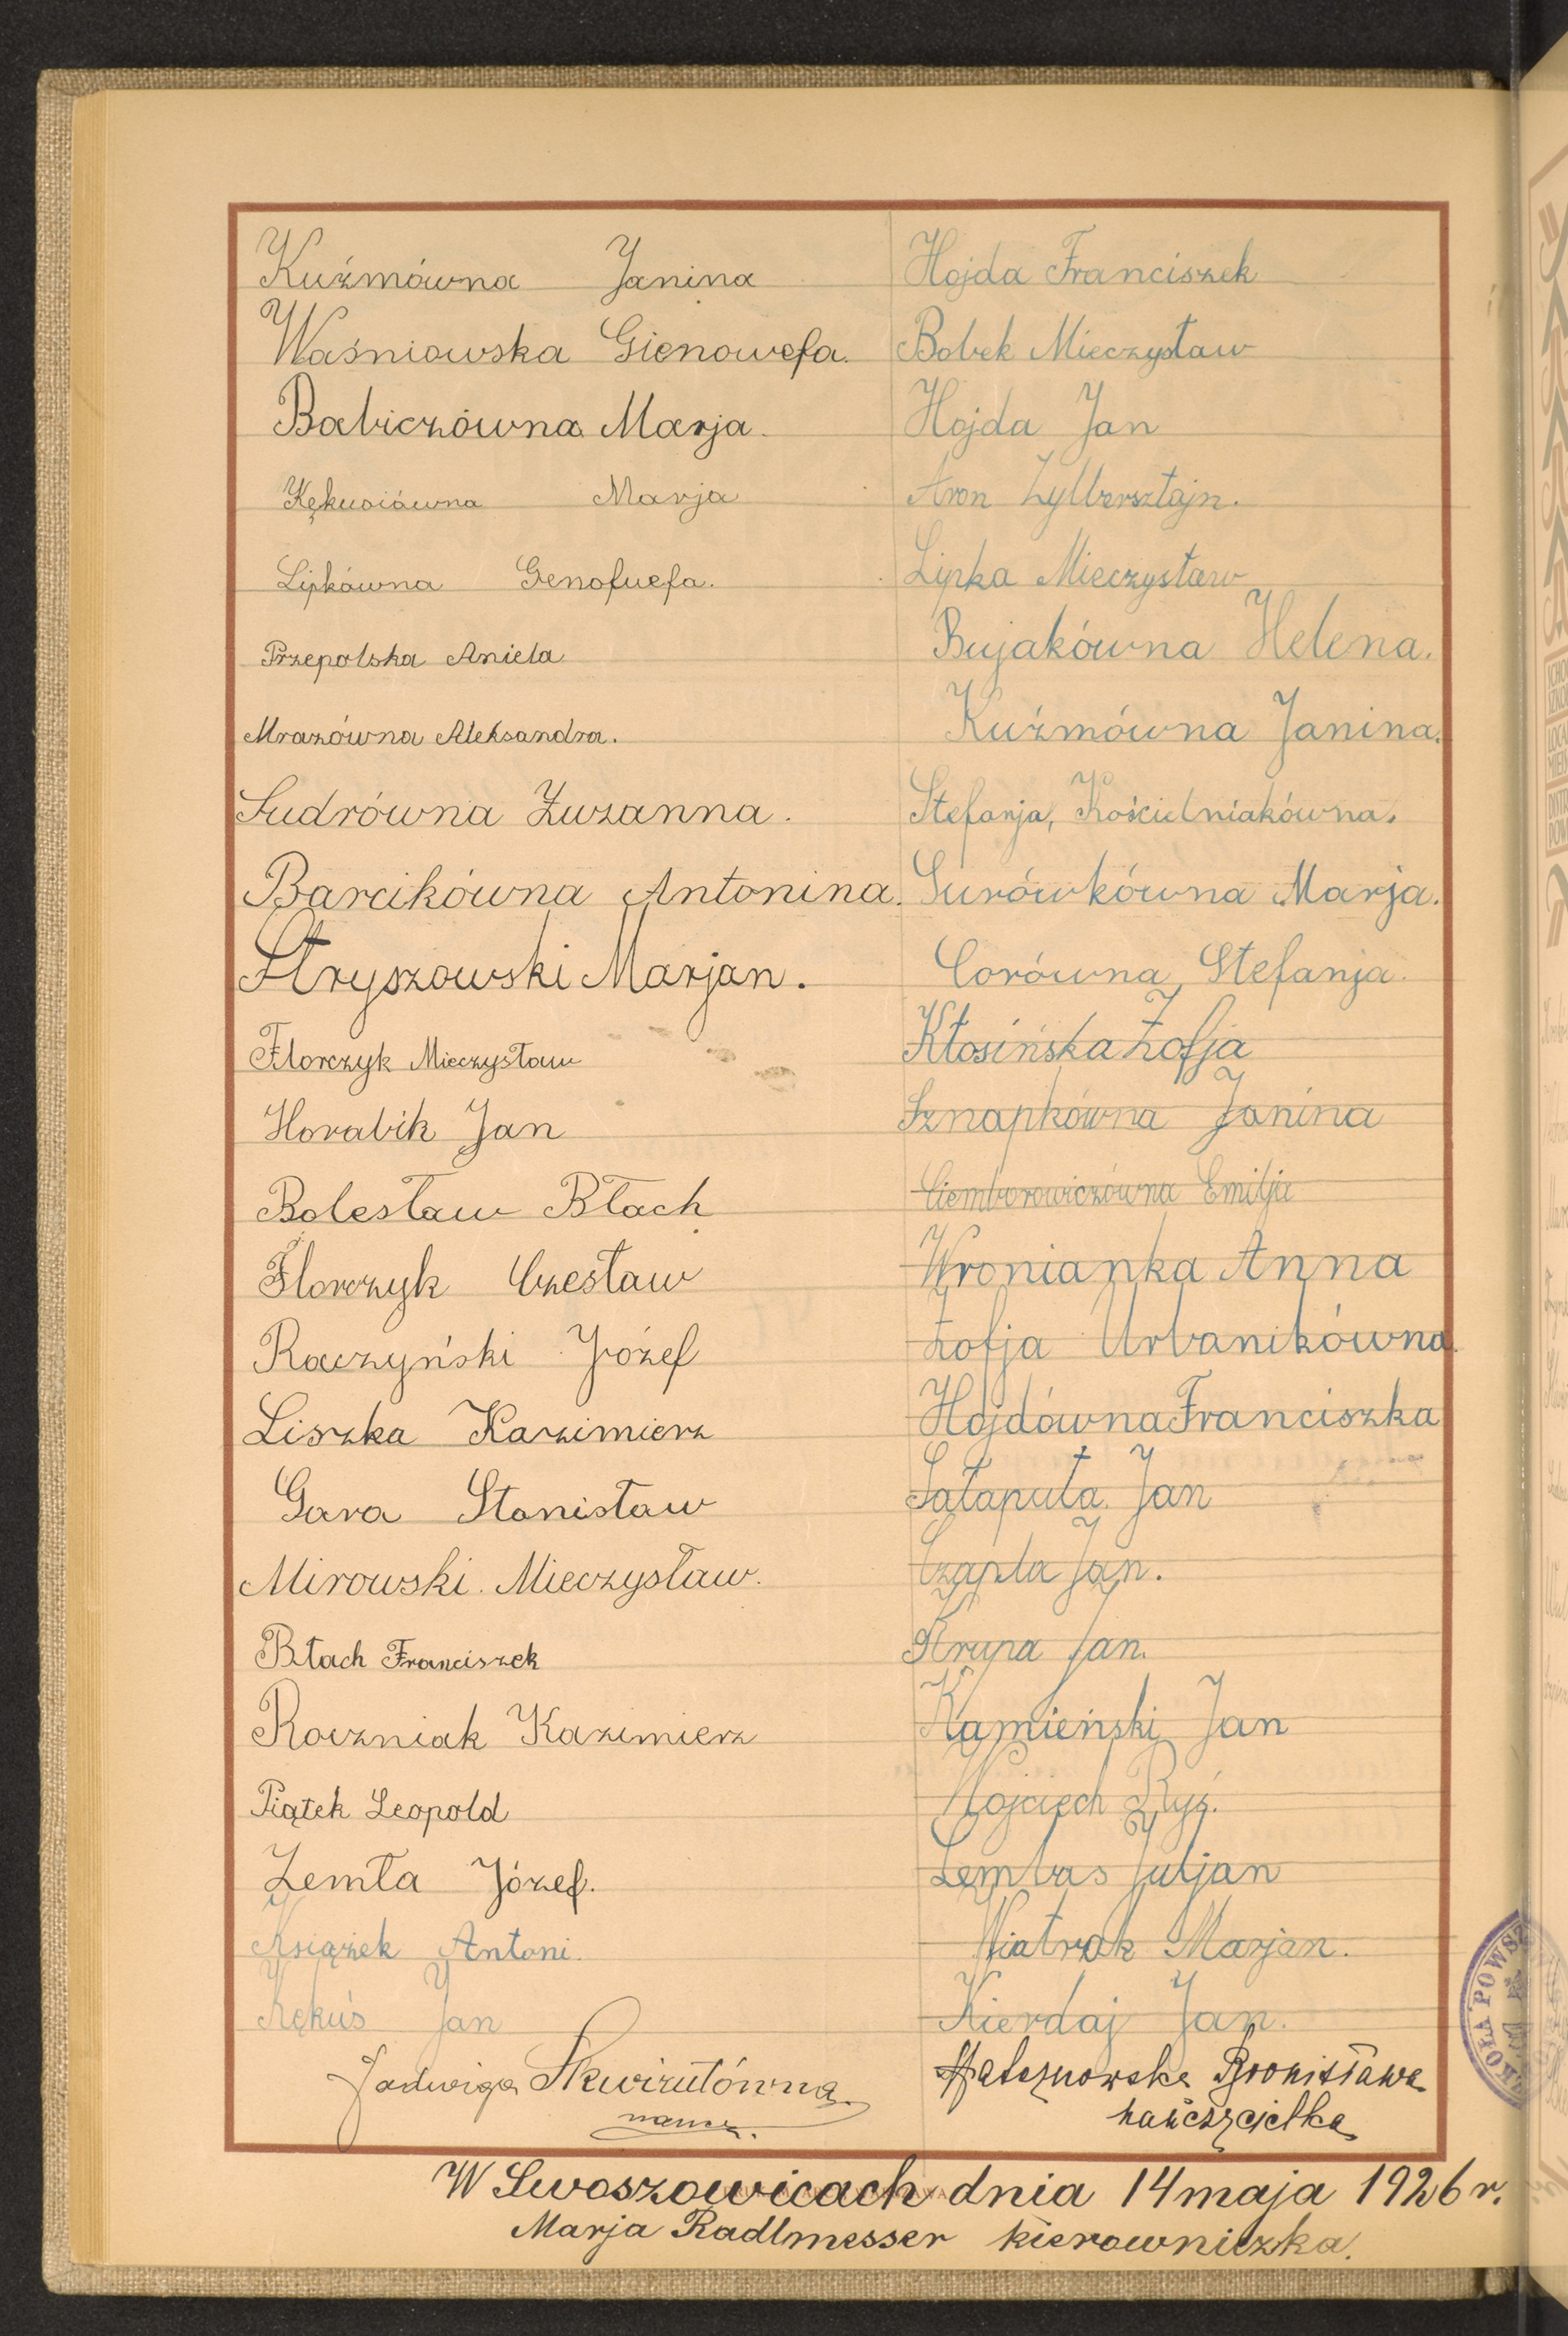 Kuźmówna Janina
Waśniowska Gienowefa.
Babiczówna Marja.
Kękusiówna Marja
Lipkówna Genofuefa.
Przepolska Aniela
Mrazówna Aleksandra.
Sudrówna Zuzanna.
Barcikówna Antonina.
Stryszowski Marjan.
Florczyk Mieczysław
Horabik Jan
Bolesław Błach
Florczyk Czesław
Raczyński Józef
Liszka Kazimierz
Gara Stanisław
Mirowski Mieczysław.
Błach Franciszek
Roczniak Kazimierz
Piątek Leopold
Zemła Józef.
Książek Antoni.
Kękuś Jan
Jadwiga Skwirutówna
naucz.
Hojda Franciszek
Bobek Mieczysław
Hojda Jan
Aron Zylbersztajn.
Lipka Mieczysław
Bujakówna Helena.
Kuźmówna Janina.
Stefanja, Kościelniakówna.
Surówkówna Marja.
Corówna Stefanja.
Kłosińska Zofja
Sznapkówna Janina
Ciemborowiczówna Emilja
Wronianka Anna
Zofja Urbanikówna.
Hojdówna Franciszka
Sałaputa Jan
Czapla Jan.
Krupa Jan.
Kamieński Jan
Wojciech Ryś.
Lembas Juljan
Wiatrak Marjan.
Kierdaj Jan.
Bronisława
nauczycielka
W Swoszowicach dnia 14 maja 1926 r.
Marja Radlmesser kierowniczka.